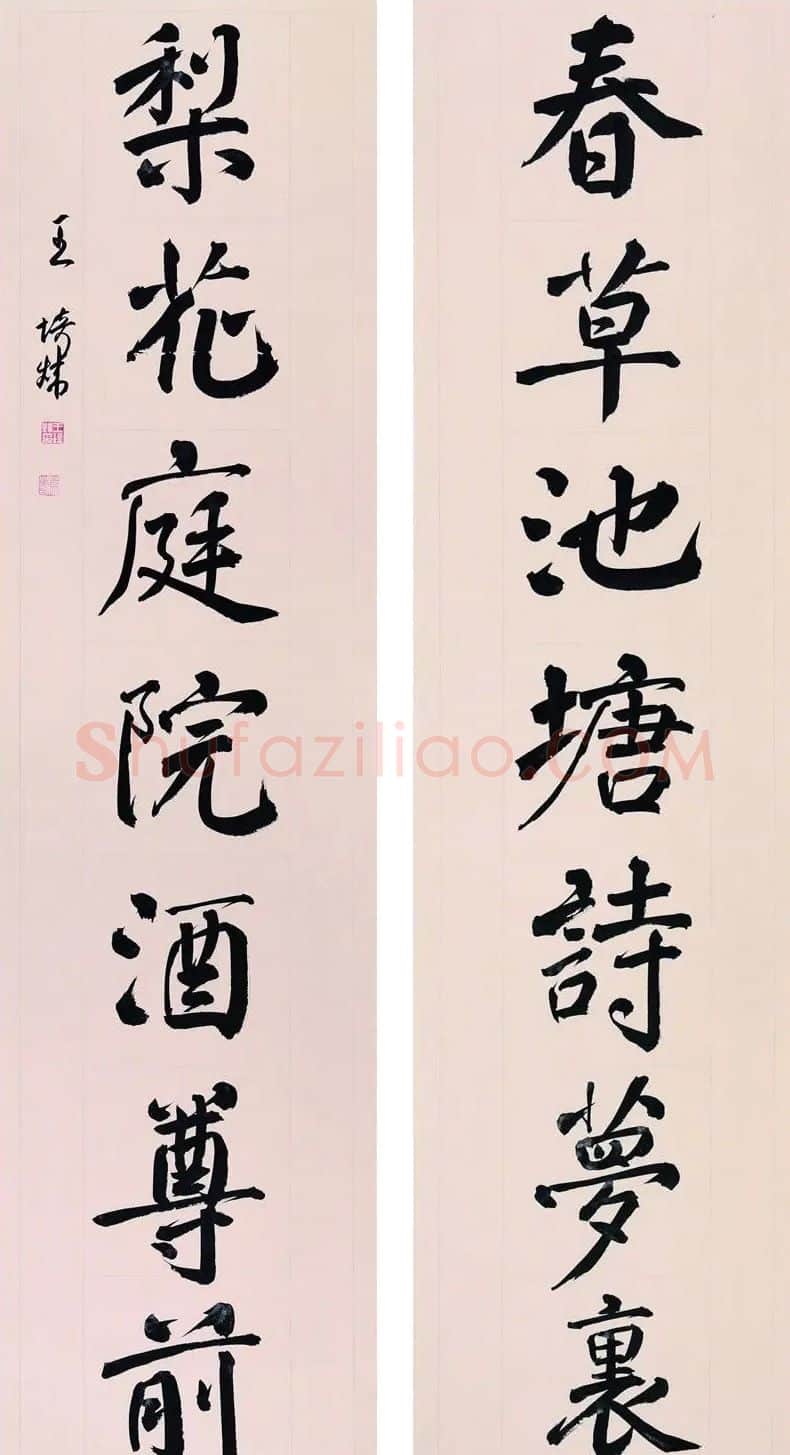 春草池塘詩夢裏
梨花庭院酒尊前
王培炜
Shufaziliao.COM